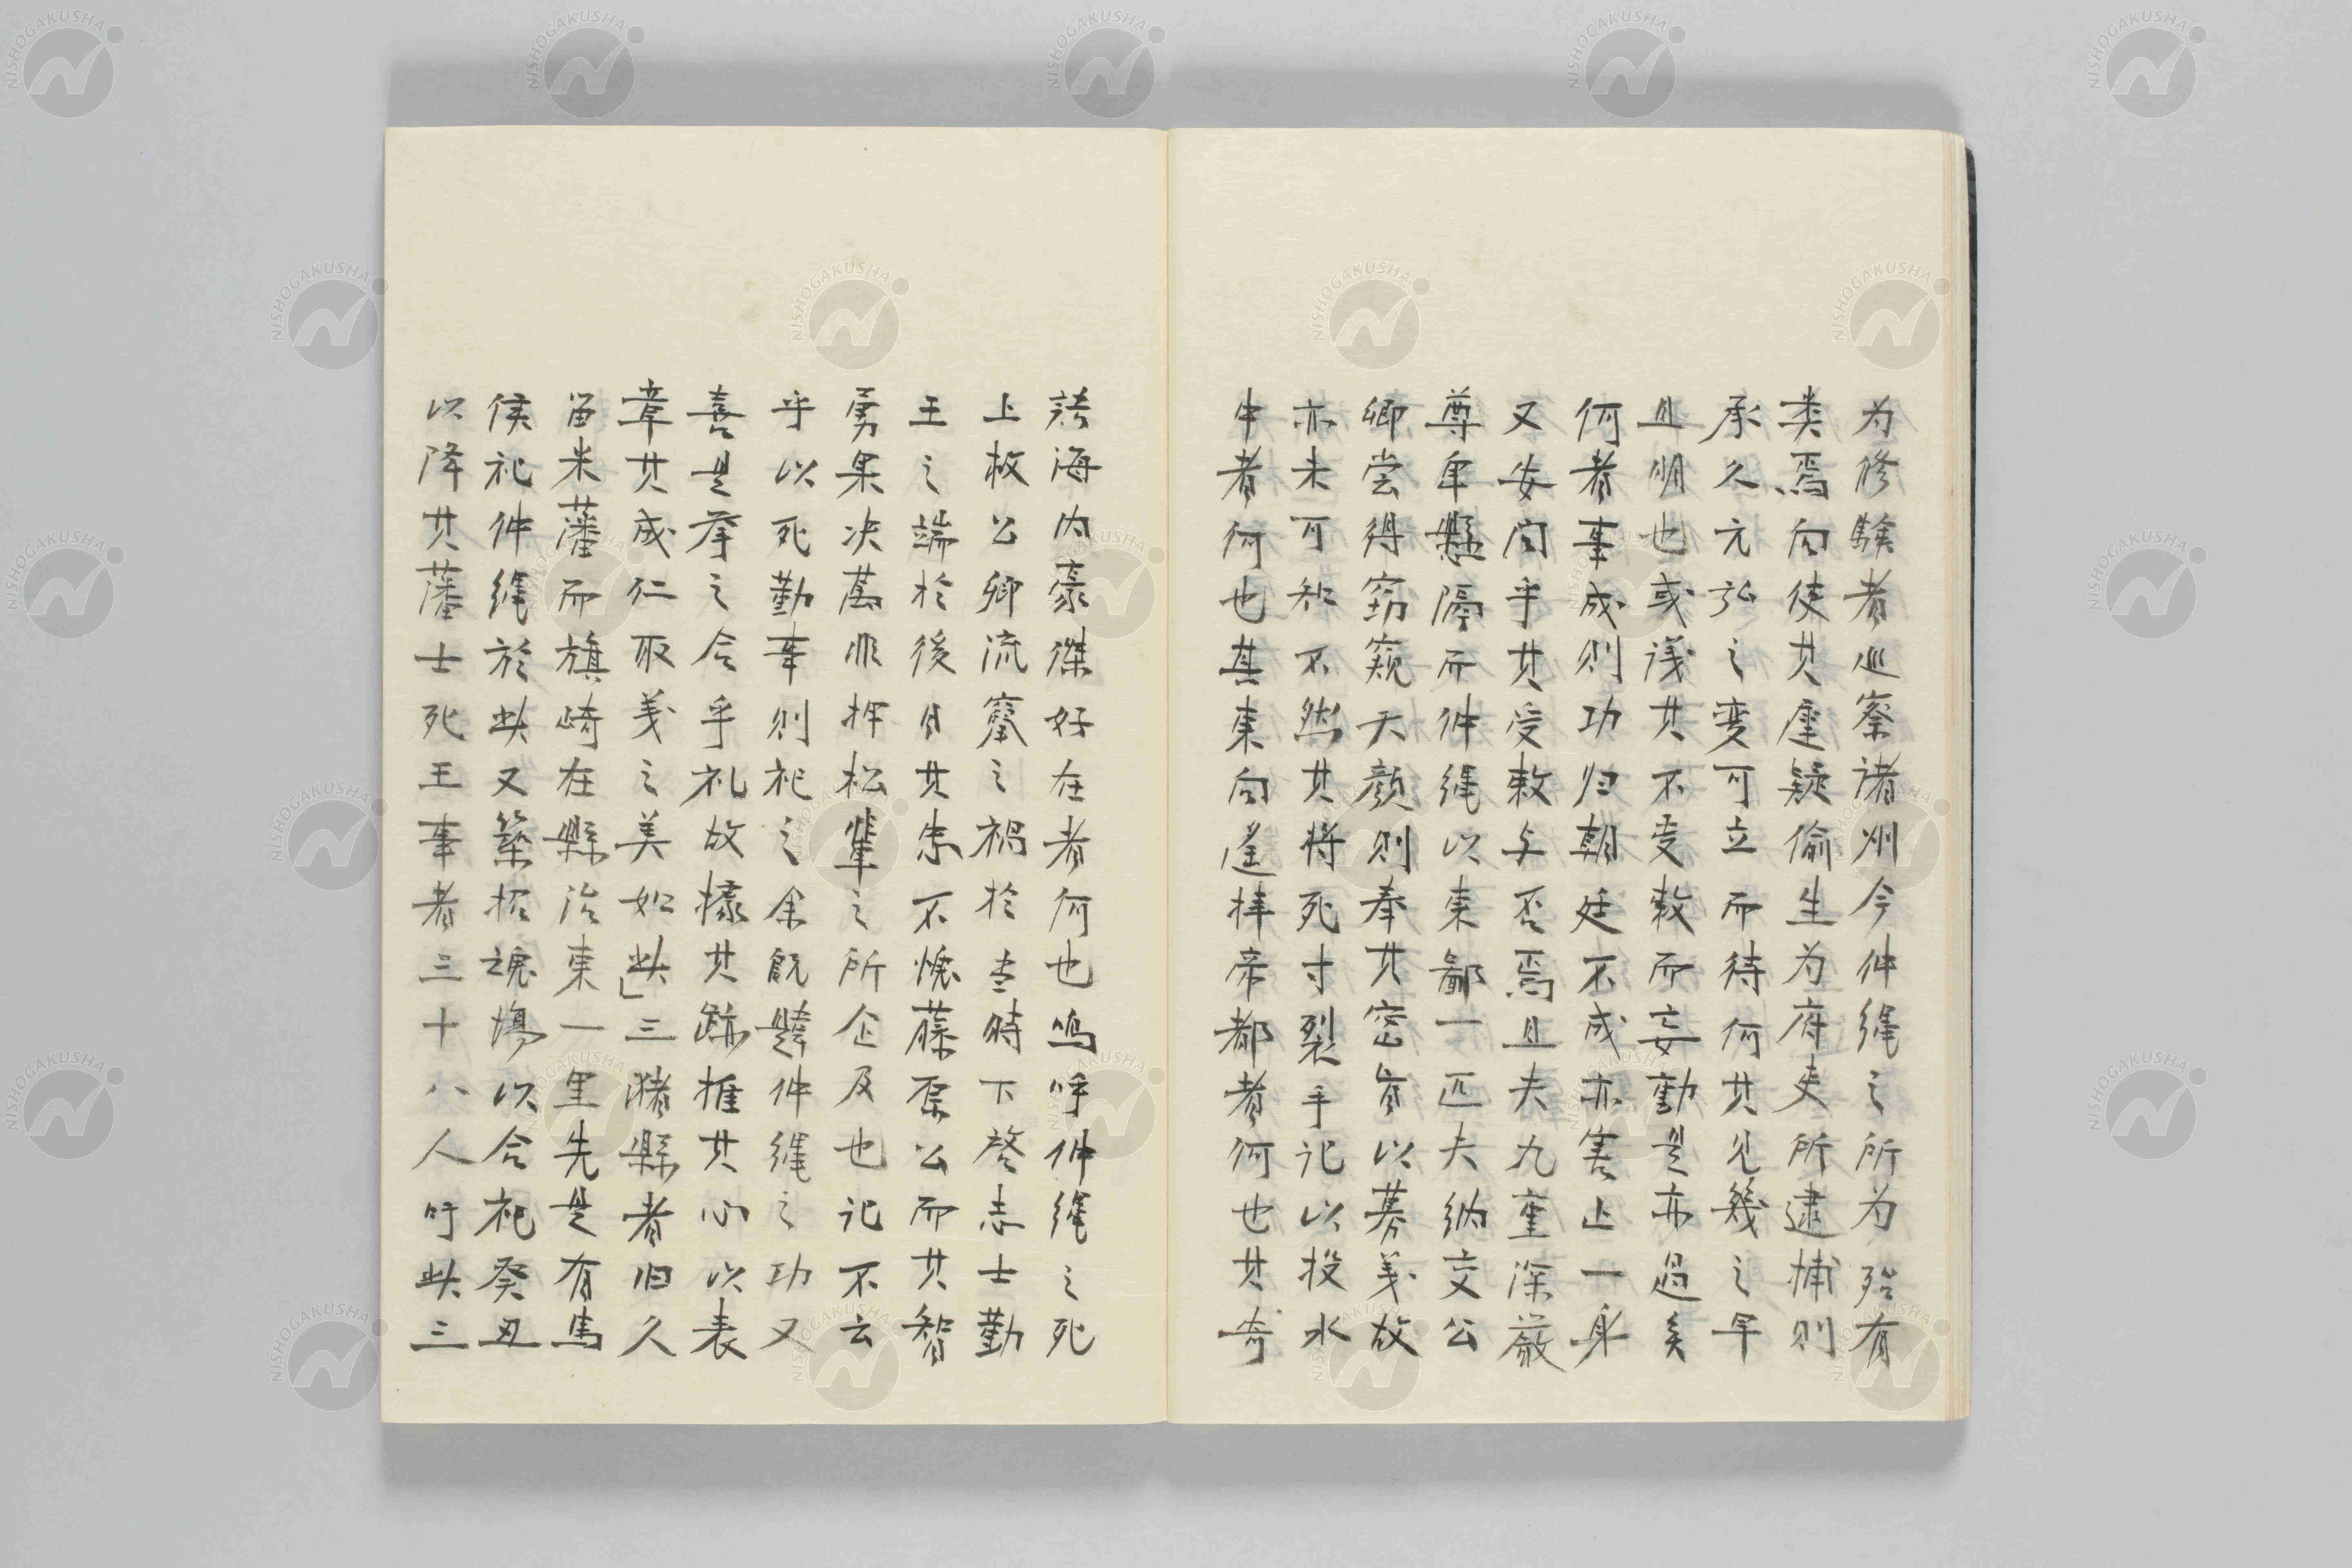 为修験者巡察諸州今仲縄之所为殆有
类焉向使其虚疑偷生为府吏所逮捕則
承久元弘之変可立而待何其见幾之早
且明也或議其不受敕而妄動是亦過矣
何者事成則功归朝廷不成亦害止一身
又安问乎其受敕与否焉且夫九重深厳
尊卑懸隔而仲縄以東鄙一匹夫納交公
卿尝得窃窺天顔則奉其密旨以募義故
亦未可知不然其将死寸裂手记以投水
中者何也其東向遥拝帝都者何也其寄
海内豪傑好在者何也鸣呼仲縄之死
上救公卿流竄之禍於当時下啓志士勤
王之端於後日其忠不愧藤原公而其智
勇果决萬非押松輩之所企及也记不云
乎以死勤事則祀之余既韙仲縄之功又
喜是挙之合乎礼故據其跡推其心以表
章其成仁取義之美如此」三潴縣者旧久
留米藩而旗崎在縣治東一里先是有馬
侯祀仲縄於此又築招魂場以合祀癸丑
以降其藩士死王事者三十八人吁此三